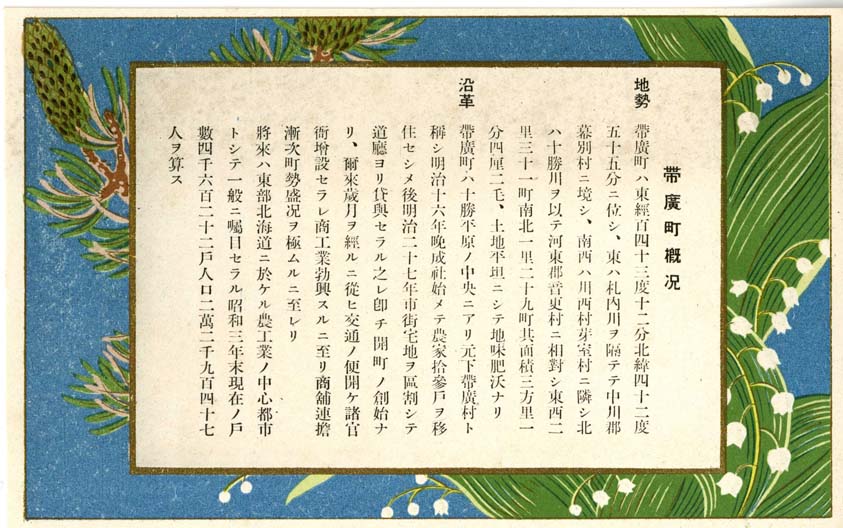 帶廣町概況
地勢 帶廣町ハ東經百四十三度十二分北緯四十二度
五十五分ニ位シ、東ハ札内川ヲ隔テテ中川郡
幕別村ニ境シ、南西ハ川西村芽室村ニ隣シ北
ハ十勝川ヲ以テ河東郡音更村ニ相對シ東西二
里三十一町南北一里二十九町其面積三方里一
分四厘二毛、土地平坦ニシテ地味肥沃ナリ
沿革 帶廣町ハ十勝平原ノ中央ニアリ元下帶廣村ト
稱シ明治十六年晩成社始メテ農家拾參戸ヲ移
住セシメ後明治二十七年市街宅地ヲ區割シテ
道廳ヨリ貸與セラル之レ卽チ開町ノ創始ナ
リ、爾來歲月ヲ經ルニ從ヒ交通ノ便開ケ諸官
衙增設セラレ商工業勃興スルニ至リ商舗連擔
漸次町勢盛況ヲ極ムルニ至レリ
將來ハ東部北海道ニ於ケル農工業ノ中心都市
トシテ一般ニ囑目セラル昭和三年末現在ノ戸
數四千六百二十二戸人口二萬二千九百四十七
人ヲ算ス